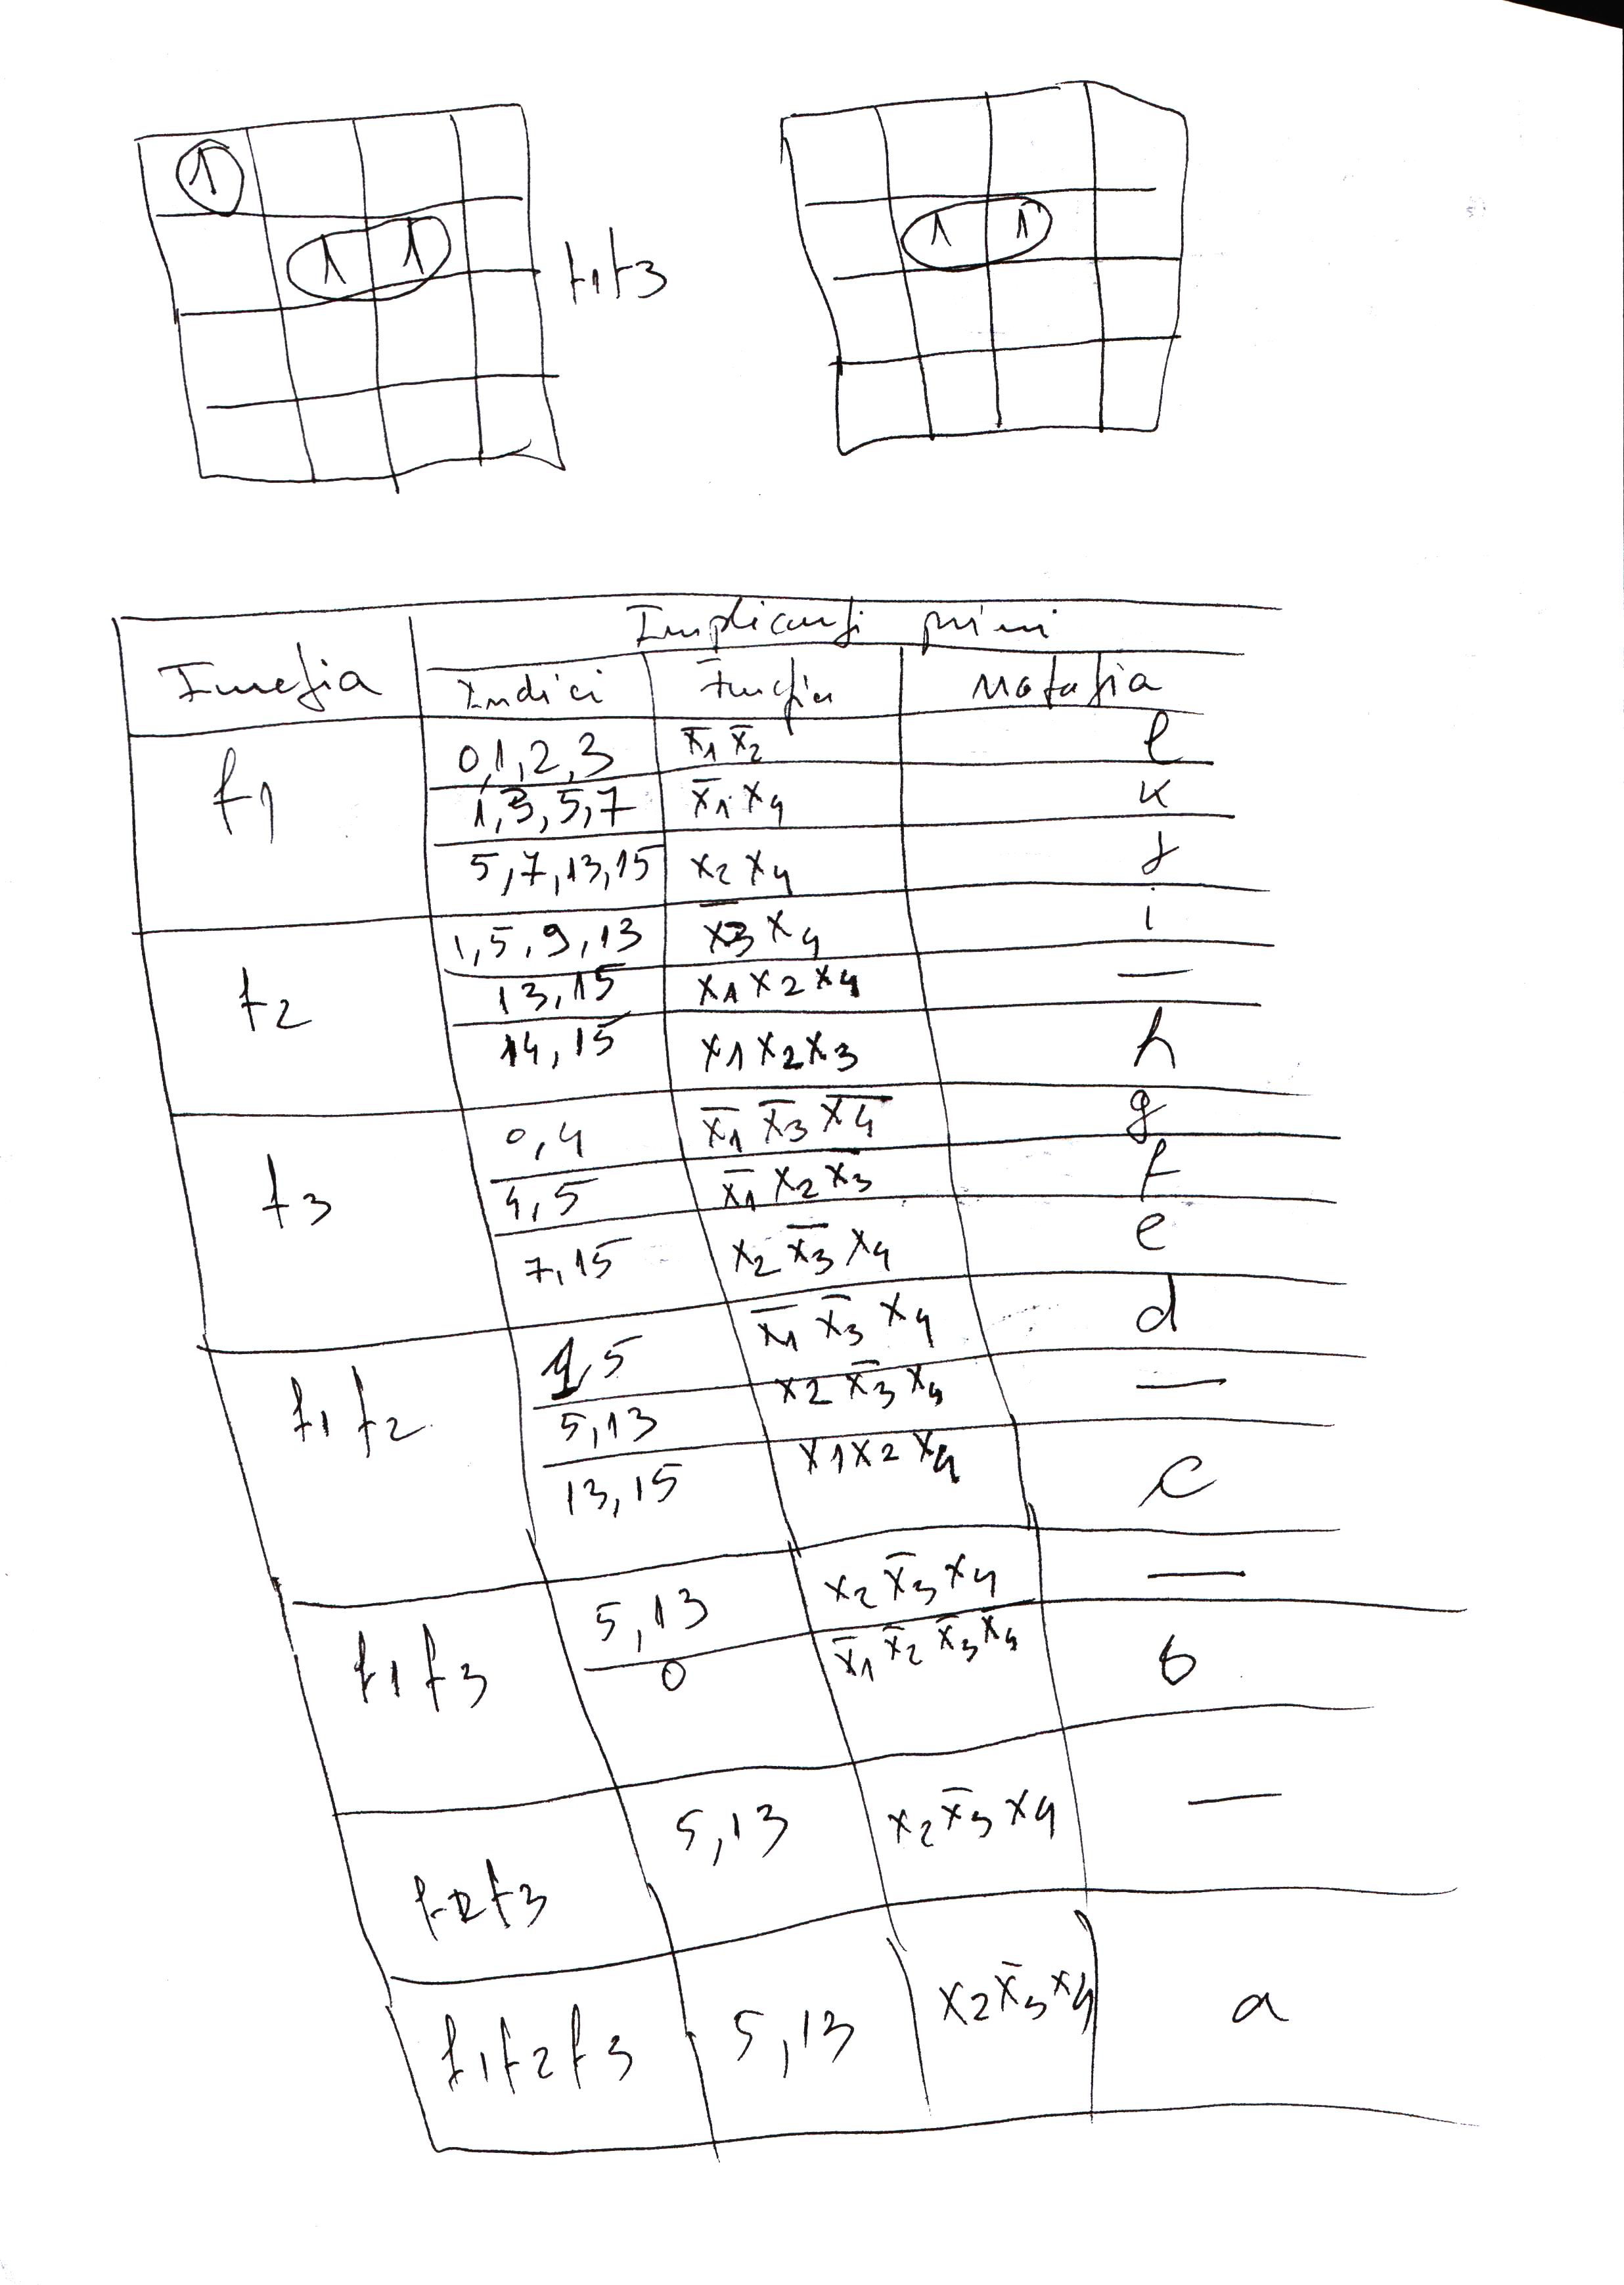 1
1 1
f1f3
1 1
Implicanți primi
Funcția Indici Funcția Notația
f1 0,1,2,3 x̄1 x̄2 l
1,3,5,7 x̄1 x4 k
5,7,13,15 x2 x4 j
f2 1,5,9,13 x̄3 x4 i
13,15 x1 x2 x4 —
14,15 x1 x2 x3 h
f3 0,4 x̄1 x̄3 x̄4 g
4,5 x̄1 x2 x̄3 f
7,15 x2 x̄3 x4 e
f1 f2 1,5 x̄1 x̄3 x4 d
5,13 x2 x̄3 x4 —
13,15 x1 x2 x4 c
f1 f3 5,13 x2 x̄3 x4 —
0 x̄1 x̄2 x̄3 x̄4 b
f2f3 5,13 x2 x̄3 x4 —
f1f2f3 5,13 x2 x̄3 x4 a